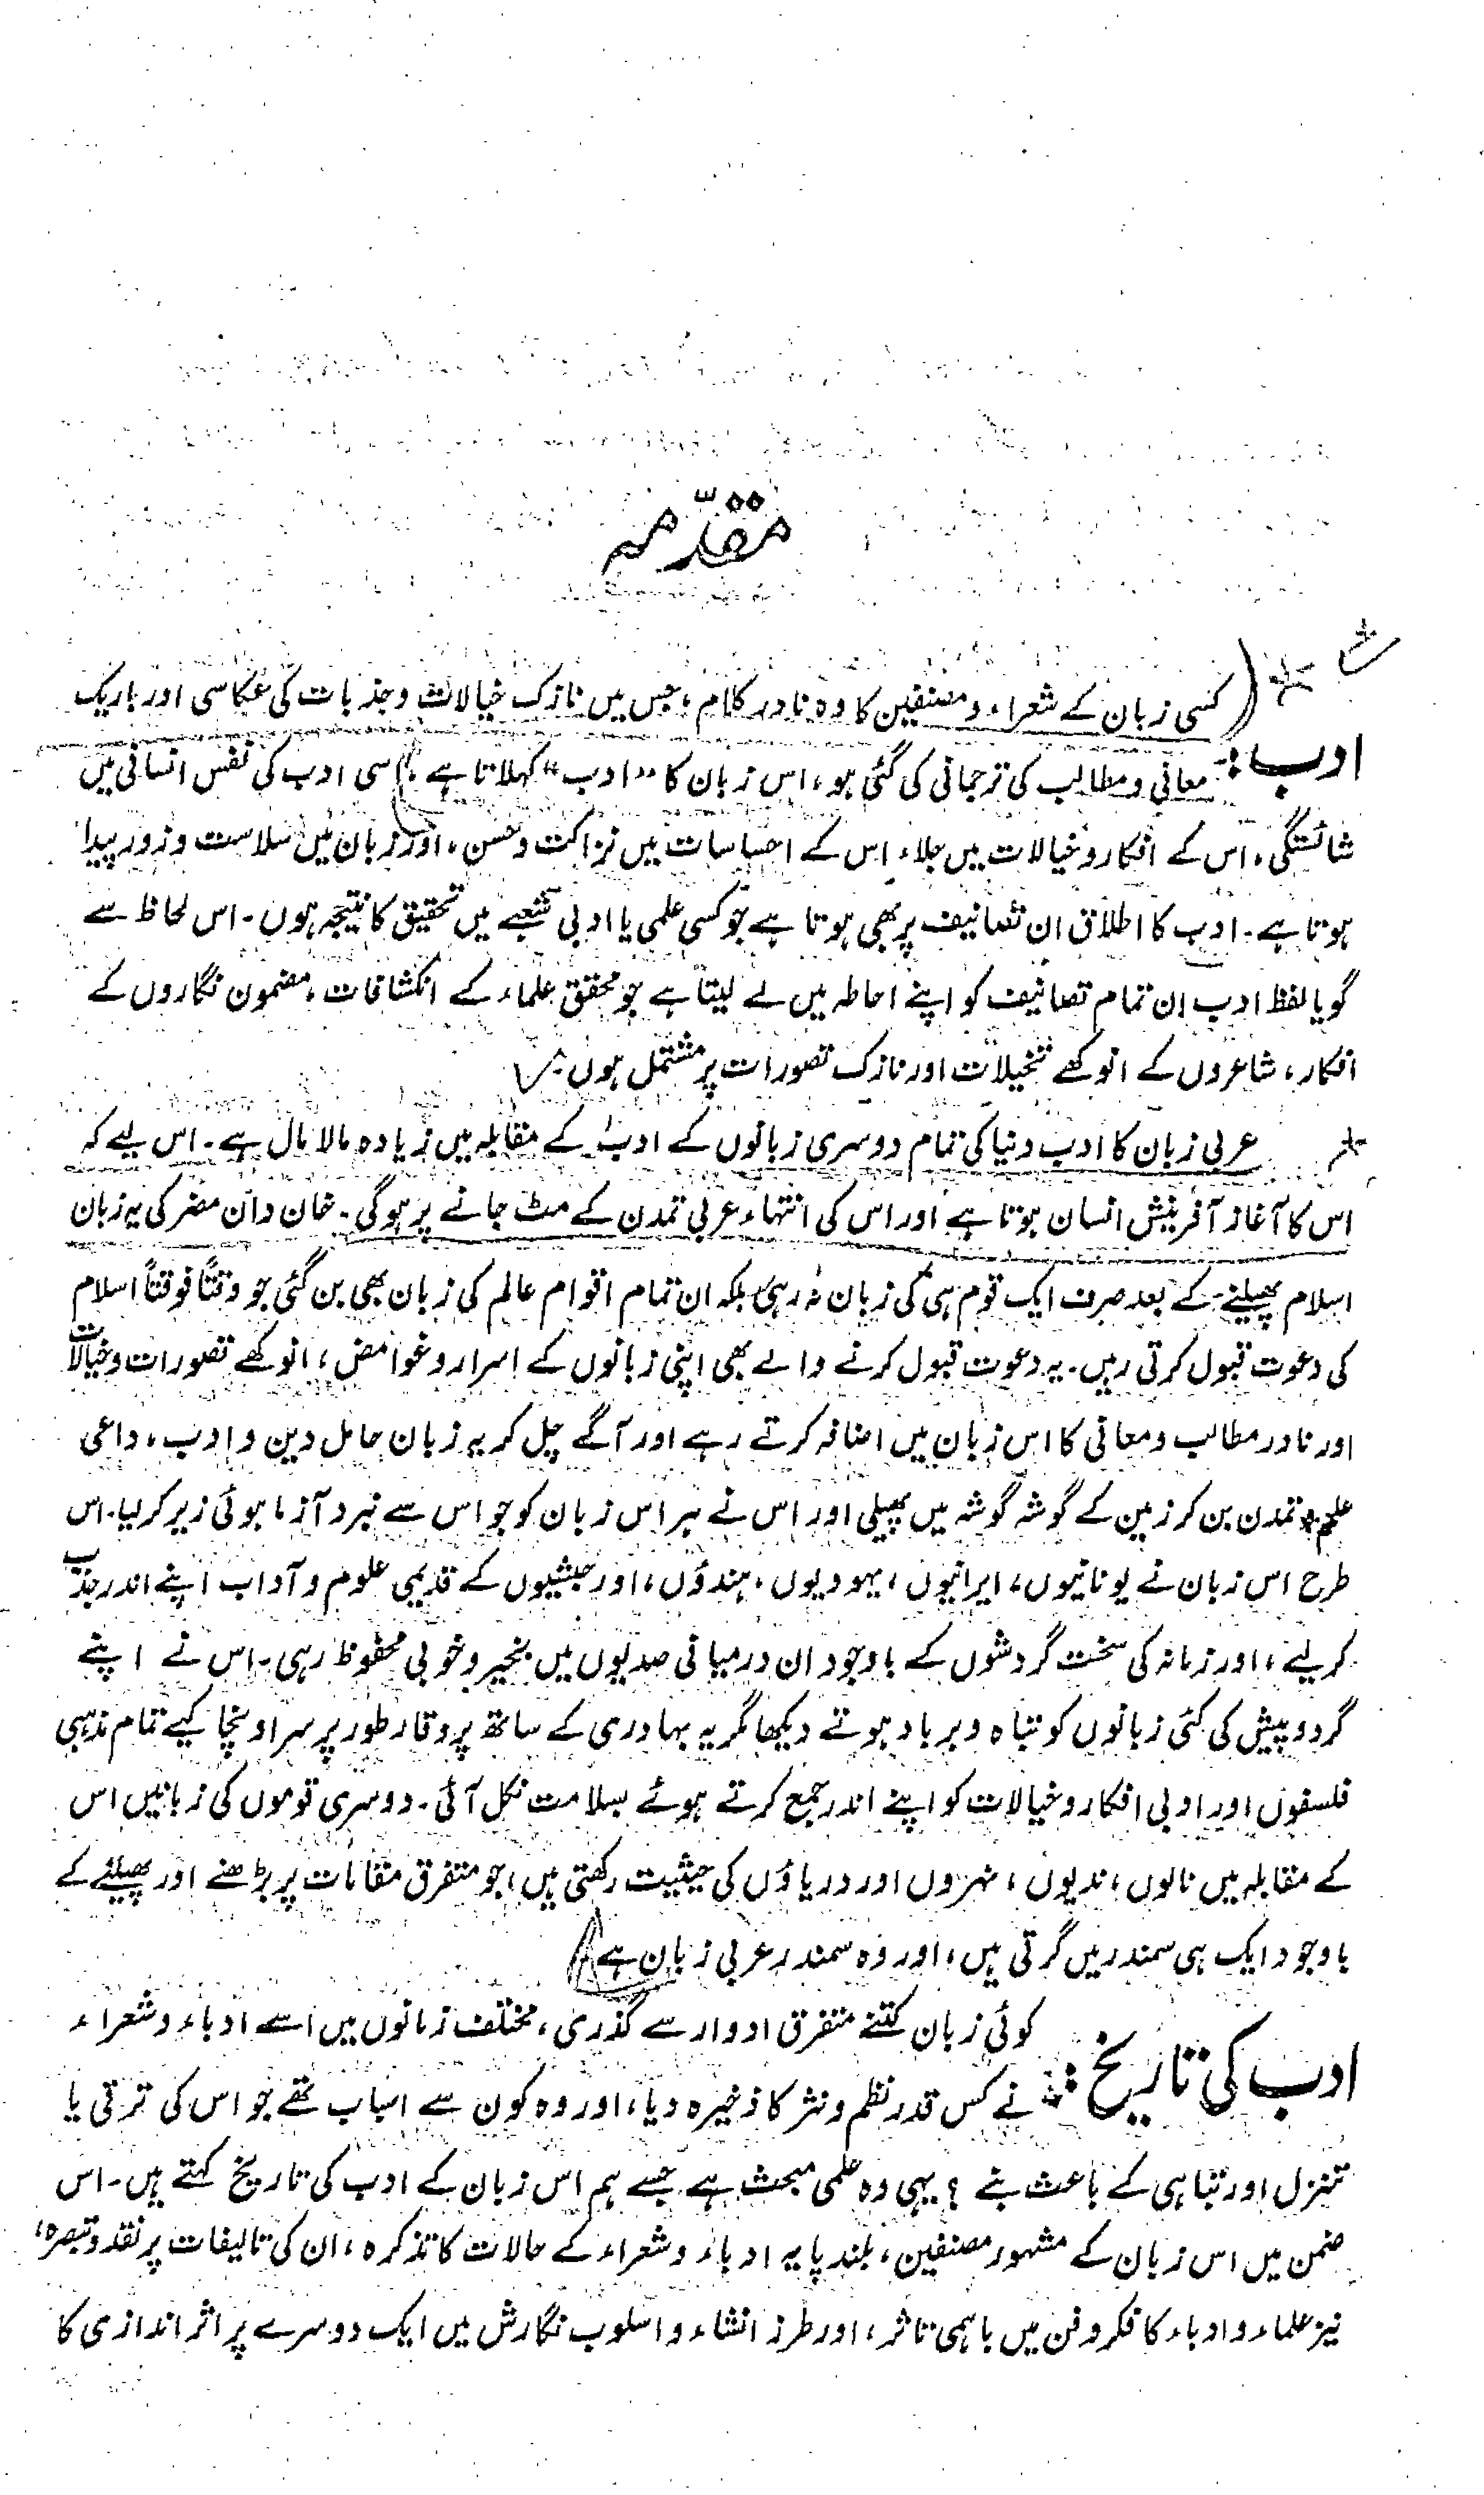 مقدّمہ
کسی زبان کے شعراء و مصنفین کا وہ نادر کلام، جس میں نازک خیالات و جذبات کی عکاسی اور باریک
ادب :- معانی و مطالب کی ترجمانی کی گئی ہو، اس زبان کا "ادب" کہلاتا ہے، اسی ادب کی نفس انسانی میں
شائستگی، اس کے افکار و خیالات میں جلاء، اس کے احساسات میں نزاکت و حسن، اور زبان میں سلاست و زور پیدا
ہوتا ہے۔ ادب کا اطلاق ان تصانیف پر بھی ہوتا ہے جو کسی علمی یا ادبی شعبے میں تحقیق کا نتیجہ ہوں۔ اس لحاظ سے
گویا لفظ ادب ان تمام تصانیف کو اپنے احاطہ میں لے لیتا ہے جو محقق علماء کے انکشافات، مضمون نگاروں کے
افکار، شاعروں کے انوکھے تخیلات اور نازک تصورات پر مشتمل ہوں۔
عربی زبان کا ادب دنیا کی تمام دوسری زبانوں کے ادب کے مقابلہ میں زیادہ مالا مال ہے۔ اس لیے کہ
اس کا آغاز آفرینش انسان ہوتا ہے اور اس کی انتہاء عربی تمدن کے مٹ جانے پر ہوگی۔ خان دان مضر کی یہ زبان
اسلام پھیلنے کے بعد صرف ایک قوم ہی کی زبان نہ رہی بلکہ ان تمام اقوام عالم کی زبان بھی بن گئی جو وقتاً فوقتاً اسلام
کی دعوت قبول کرتی رہیں۔ یہ دعوت قبول کرنے والے بھی اپنی زبانوں کے اسرار و غوامض، انوکھے تصورات و خیالات
اور نادر مطالب و معانی کا اس زبان میں اضافہ کرتے رہے اور آگے چل کر یہ زبان حامل دین و ادب، داعی
علم و تمدن بن کر زمین کے گوشہ گوشہ میں پھیلی اور اس نے ہر اس زبان کو جو اس سے نبرد آزما ہوئی زیر کر لیا۔ اس
طرح اس زبان نے یونانیوں، ایرانیوں، یہودیوں، ہندؤں، اور حبشیوں کے قدیمی علوم و آداب اپنے اندر جذب
کر لیے، اور زمانہ کی سخت گردشوں کے باوجود ان درمیانی صدیوں میں بخیر و خوبی محفوظ رہی۔ اس نے اپنے
گرد و پیش کی کئی زبانوں کو تباہ و برباد ہوتے دیکھا مگر یہ بہادری کے ساتھ پر وقار طور پر سر اونچا کیے تمام مذہبی
فلسفوں اور ادبی افکار و خیالات کو اپنے اندر جمع کرتے ہوئے بسلامت نکل آئی۔ دوسری قوموں کی زبانیں اس
کے مقابلہ میں نالوں، ندیوں، نہروں اور دریاؤں کی حیثیت رکھتی ہیں، جو متفرق مقامات پر بڑھنے اور پھیلنے کے
باوجود ایک ہی سمندر میں گرتی ہیں، اور وہ سمندر عربی زبان ہے
کوئی زبان کتنے متفرق ادوار سے گذری، مختلف زمانوں میں اسے ادباء و شعراء
ادب کی تاریخ :- نے کس قدر نظم و نثر کا ذخیرہ دیا، اور وہ کون سے اسباب تھے جو اس کی ترقی یا
تنزل اور تباہی کے باعث بنے ؟ یہی وہ علمی مبحث ہے جسے ہم اس زبان کے ادب کی تاریخ کہتے ہیں۔ اس
ضمن میں اس زبان کے مشہور مصنفین، بلند پایہ ادباء و شعراء کے حالات کا تذکرہ، ان کی تالیفات پر نقد و تبصرہ،
نیز علماء و ادباء کا فکر و فن میں باہمی تاثر، اور طرز انشاء و اسلوب نگارش میں ایک دوسرے پر اثر اندازی کا